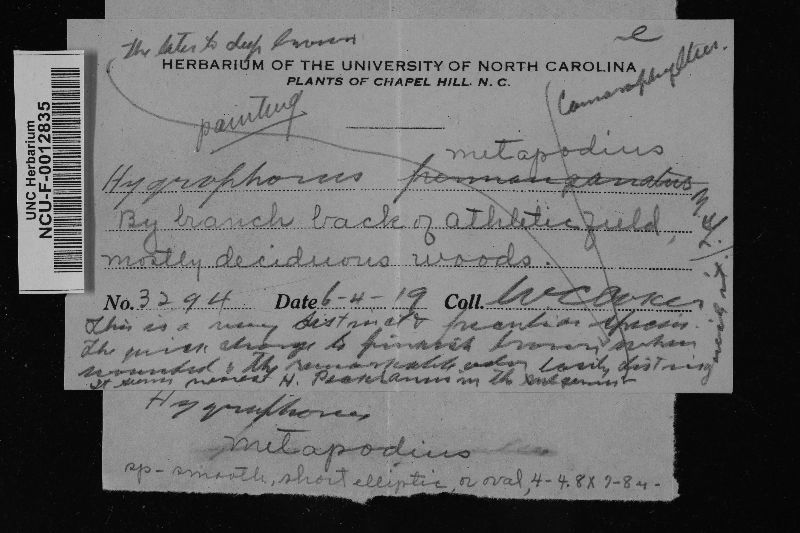 UNC Herbarium
NCU-F-0012835
The later to deep brown
HERBARIUM OF THE UNIVERSITY OF NORTH CAROLINA
PLANTS OF CHAPEL HILL, N. C.
painting
metapodius
Hygrophorus
By branch back of athletic field,
mostly deciduous woods.
No. 3294 Date 6-4-19 Coll. WC Coker
This is a very distinct & peculiar species.
The quick change to pinkish brown when
wounded & the remarkable odor easily disting
It seems nearest H. in the
Hygrophorus
metapodius
sp- smooth, short elliptic, or oval, 4-4.8 X 7-8u-